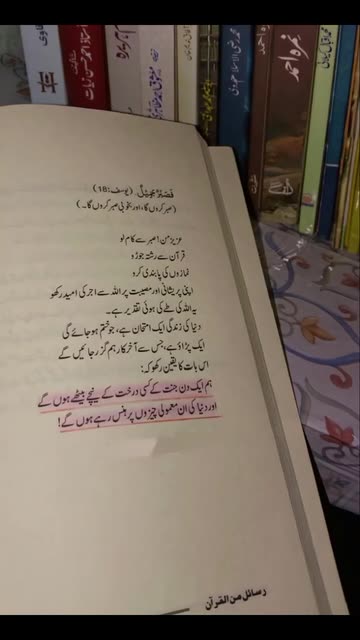 فَصَبْرٌ جَمِيْلٌ (يوسف:18)
(صبر کروں گا، اور بخوبی صبر کروں گا۔)
عزیزِ من! صبر سے کام لو
قرآن سے رشتہ جوڑو
نمازوں کی پابندی کرو
اپنی پریشانی اور مصیبت پر اللہ سے اجر کی امید رکھو
یہ اللہ کی طے کی ہوئی تقدیر ہے۔
دنیا کی زندگی ایک امتحان ہے، جو ختم ہو جائے گی
ایک پڑاؤ ہے، جس سے آخر کار ہم گزر جائیں گے
اس بات کا یقین رکھو کہ:
ہم ایک دن جنت کے کسی درخت کے نیچے بیٹھے ہوں گے
اور دنیا کی ان معمولی چیزوں پر ہنس رہے ہوں گے!
رسائل من القرآن
نمرہ احمد